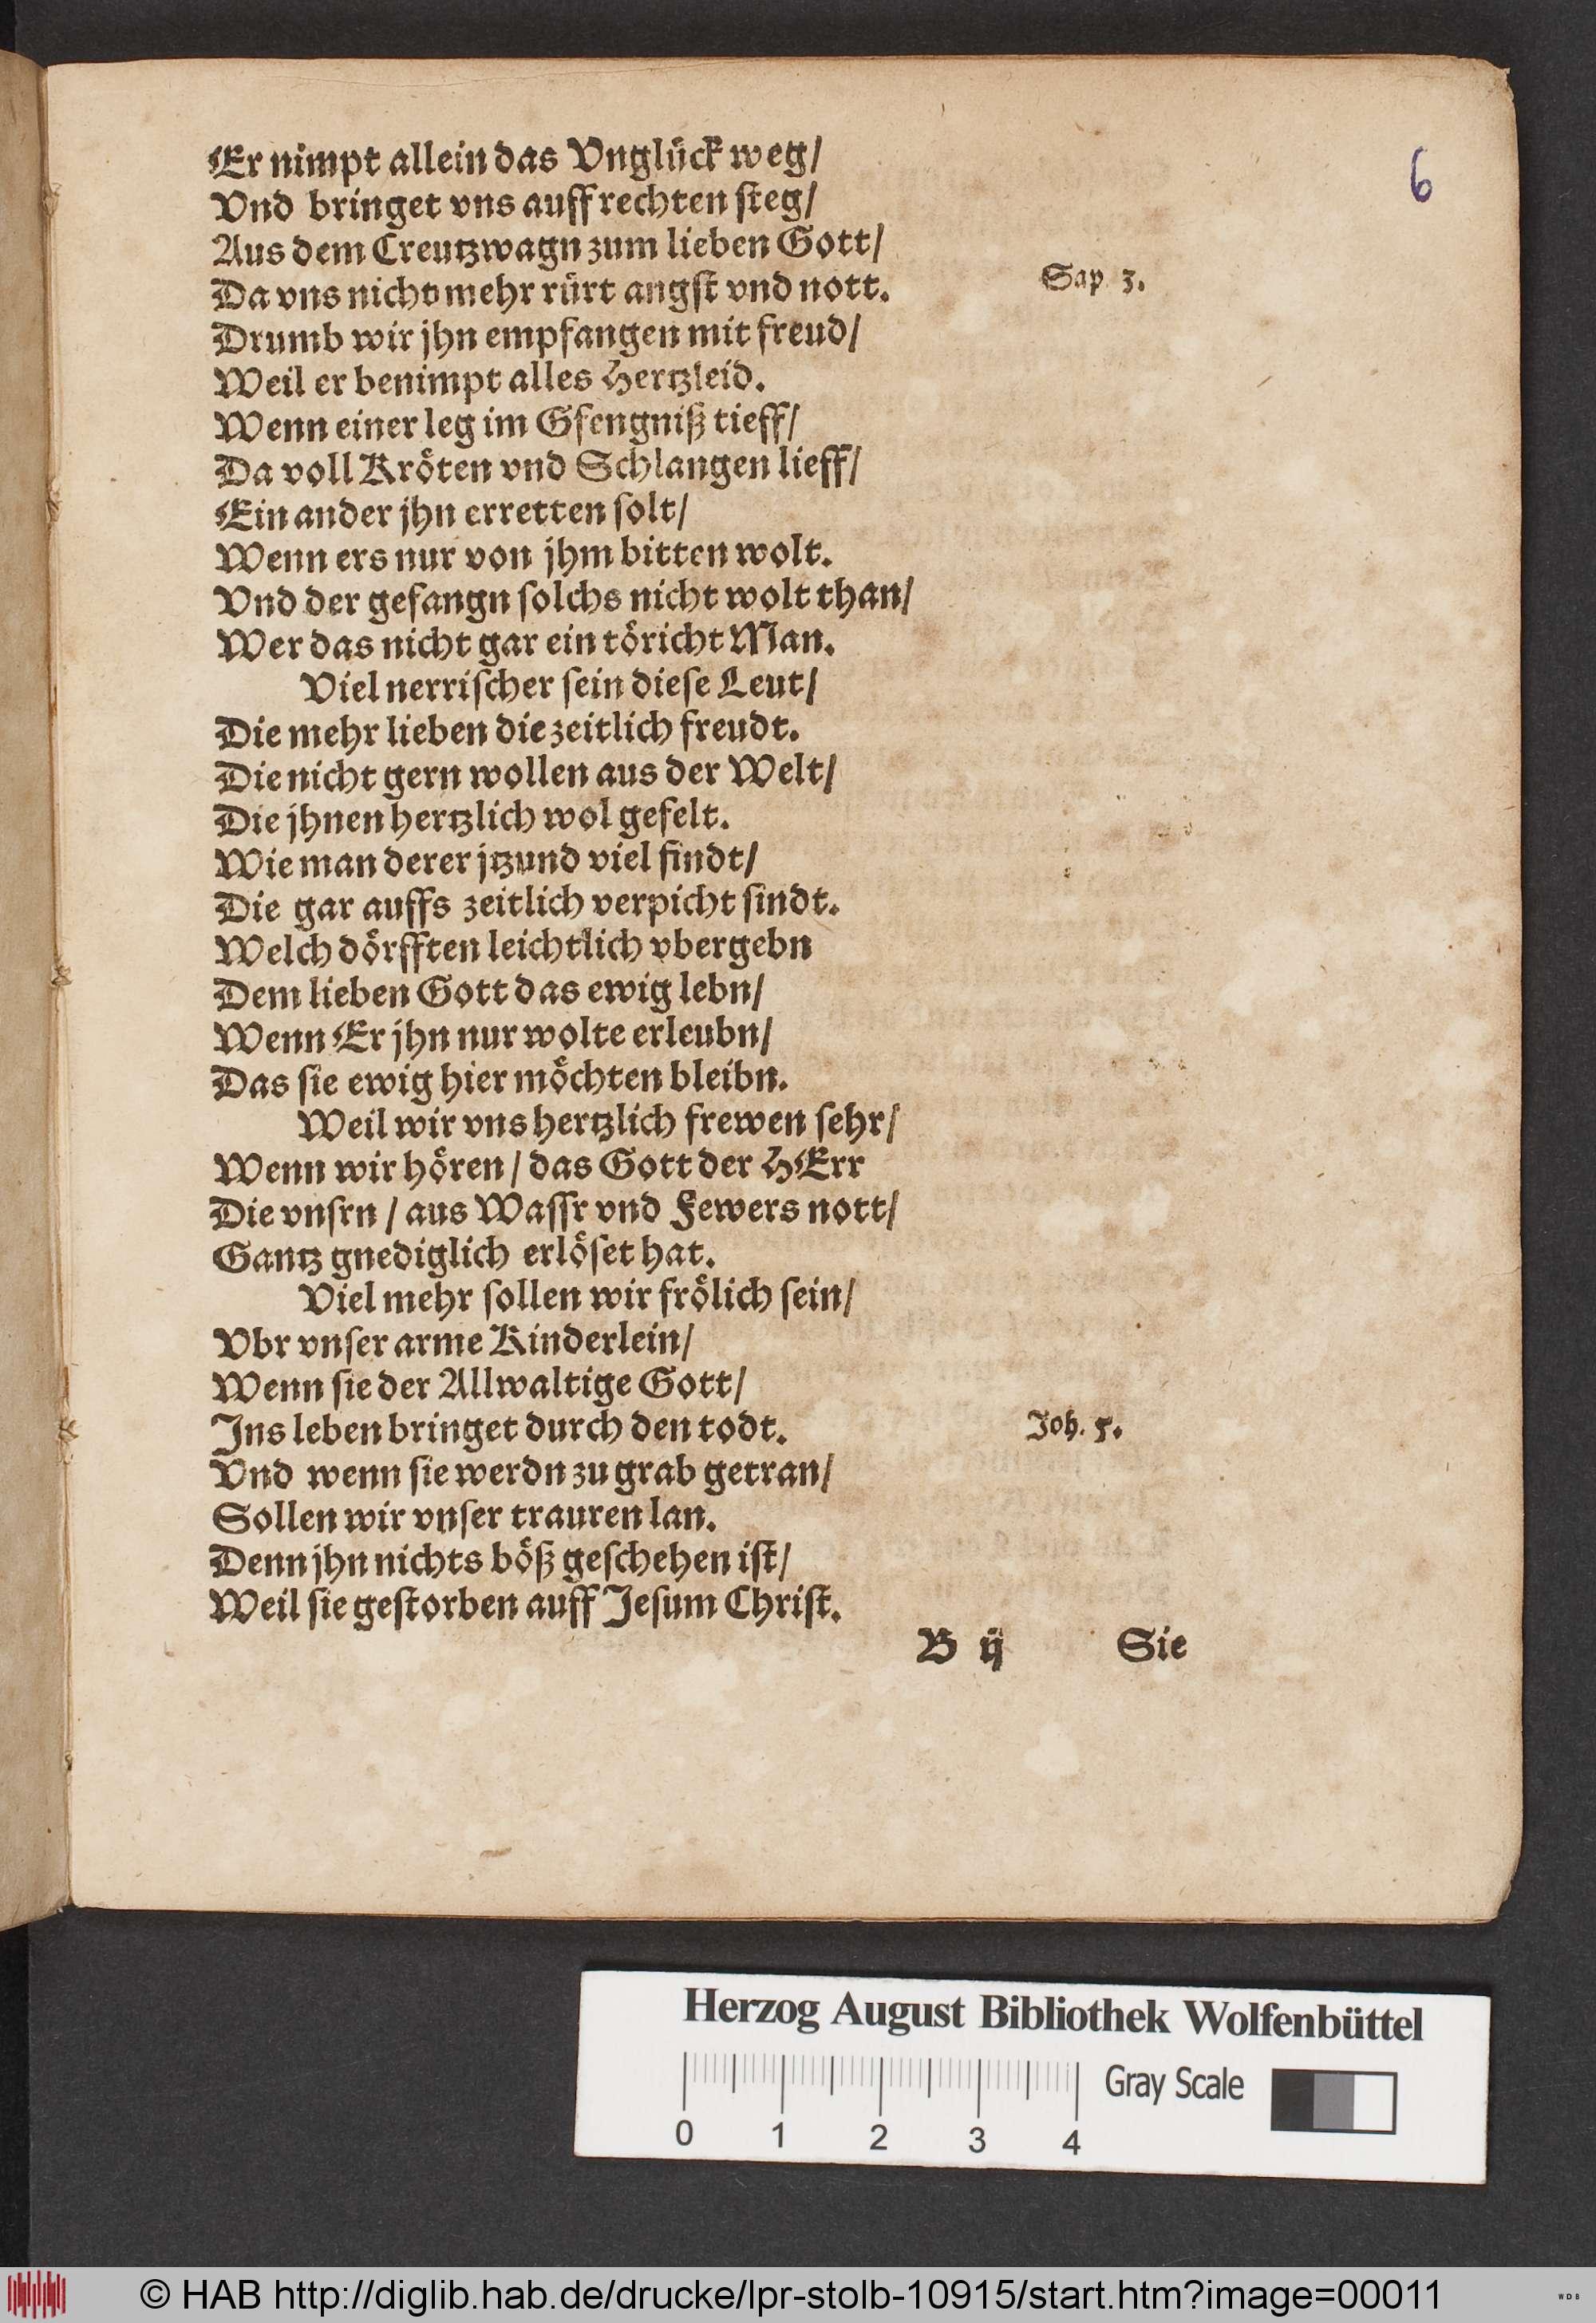 6
Er nimpt allein das Vnglück weg/
Vnd bringet vns auff rechten ſteg/
Aus dem Creutzwagn zum lieben Gott/
Da vns nicht mehr rürt angſt vnd nott. Sap. 3.
Drumb wir jhn empfangen mit freud/
Weil er benimpt alles Hertzleid.
Wenn einer leg im Gfengniß tieff/
Da voll Kröten vnd Schlangen lieff/
Ein ander jhn erretten ſolt/
Wenn ers nur von jhm bitten wolt.
Vnd der gefangn ſolchs nicht wolt than/
Wer das nicht gar ein töricht Man.
Viel nerriſcher ſein dieſe Leut/
Die mehr lieben die zeitlich freudt.
Die nicht gern wollen aus der Welt/
Die jhnen hertzlich wol gefelt.
Wie man derer jtzund viel findt/
Die gar auffs zeitlich verpicht ſindt.
Welch dörfften leichtlich vbergebn
Dem lieben Gott das ewig lebn/
Wenn Er jhn nur wolte erleubn/
Das ſie ewig hier möchten bleibn.
Weil wir vns hertzlich frewen ſehr/
Wenn wir hören / das Gott der HErr
Die vnſrn / aus Waſſr vnd Fewers nott/
Gantz gnediglich erlöſet hat.
Viel mehr ſollen wir frölich ſein/
Vbr vnſer arme Kinderlein/
Wenn ſie der Allwaltige Gott/
Ins leben bringet durch den todt. Joh. 5.
Vnd wenn ſie werdn zu grab getran/
Sollen wir vnſer trauren lan.
Denn jhn nichts böß geſchehen iſt/
Weil ſie geſtorben auff Jeſum Chriſt.
B ij Sie
Herzog August Bibliothek Wolfenbüttel
Gray Scale
0 1 2 3 4
© HAB http://diglib.hab.de/drucke/lpr-stolb-10915/start.htm?image=00011
WDB